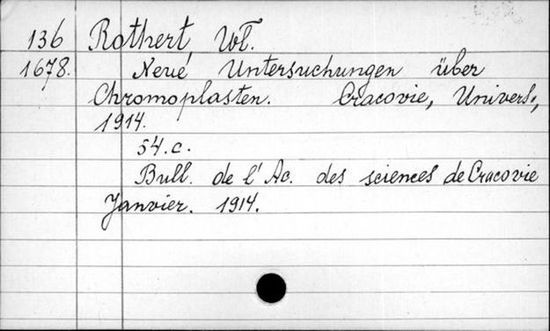 136 Rothert Wł.
1678. Neue Untersuchungen über
Chromoplasten. Cracovie, Univers.,
1914.
54.c.
Bull. de l'Ac. des sciences de Cracovie
Janvier. 1914.